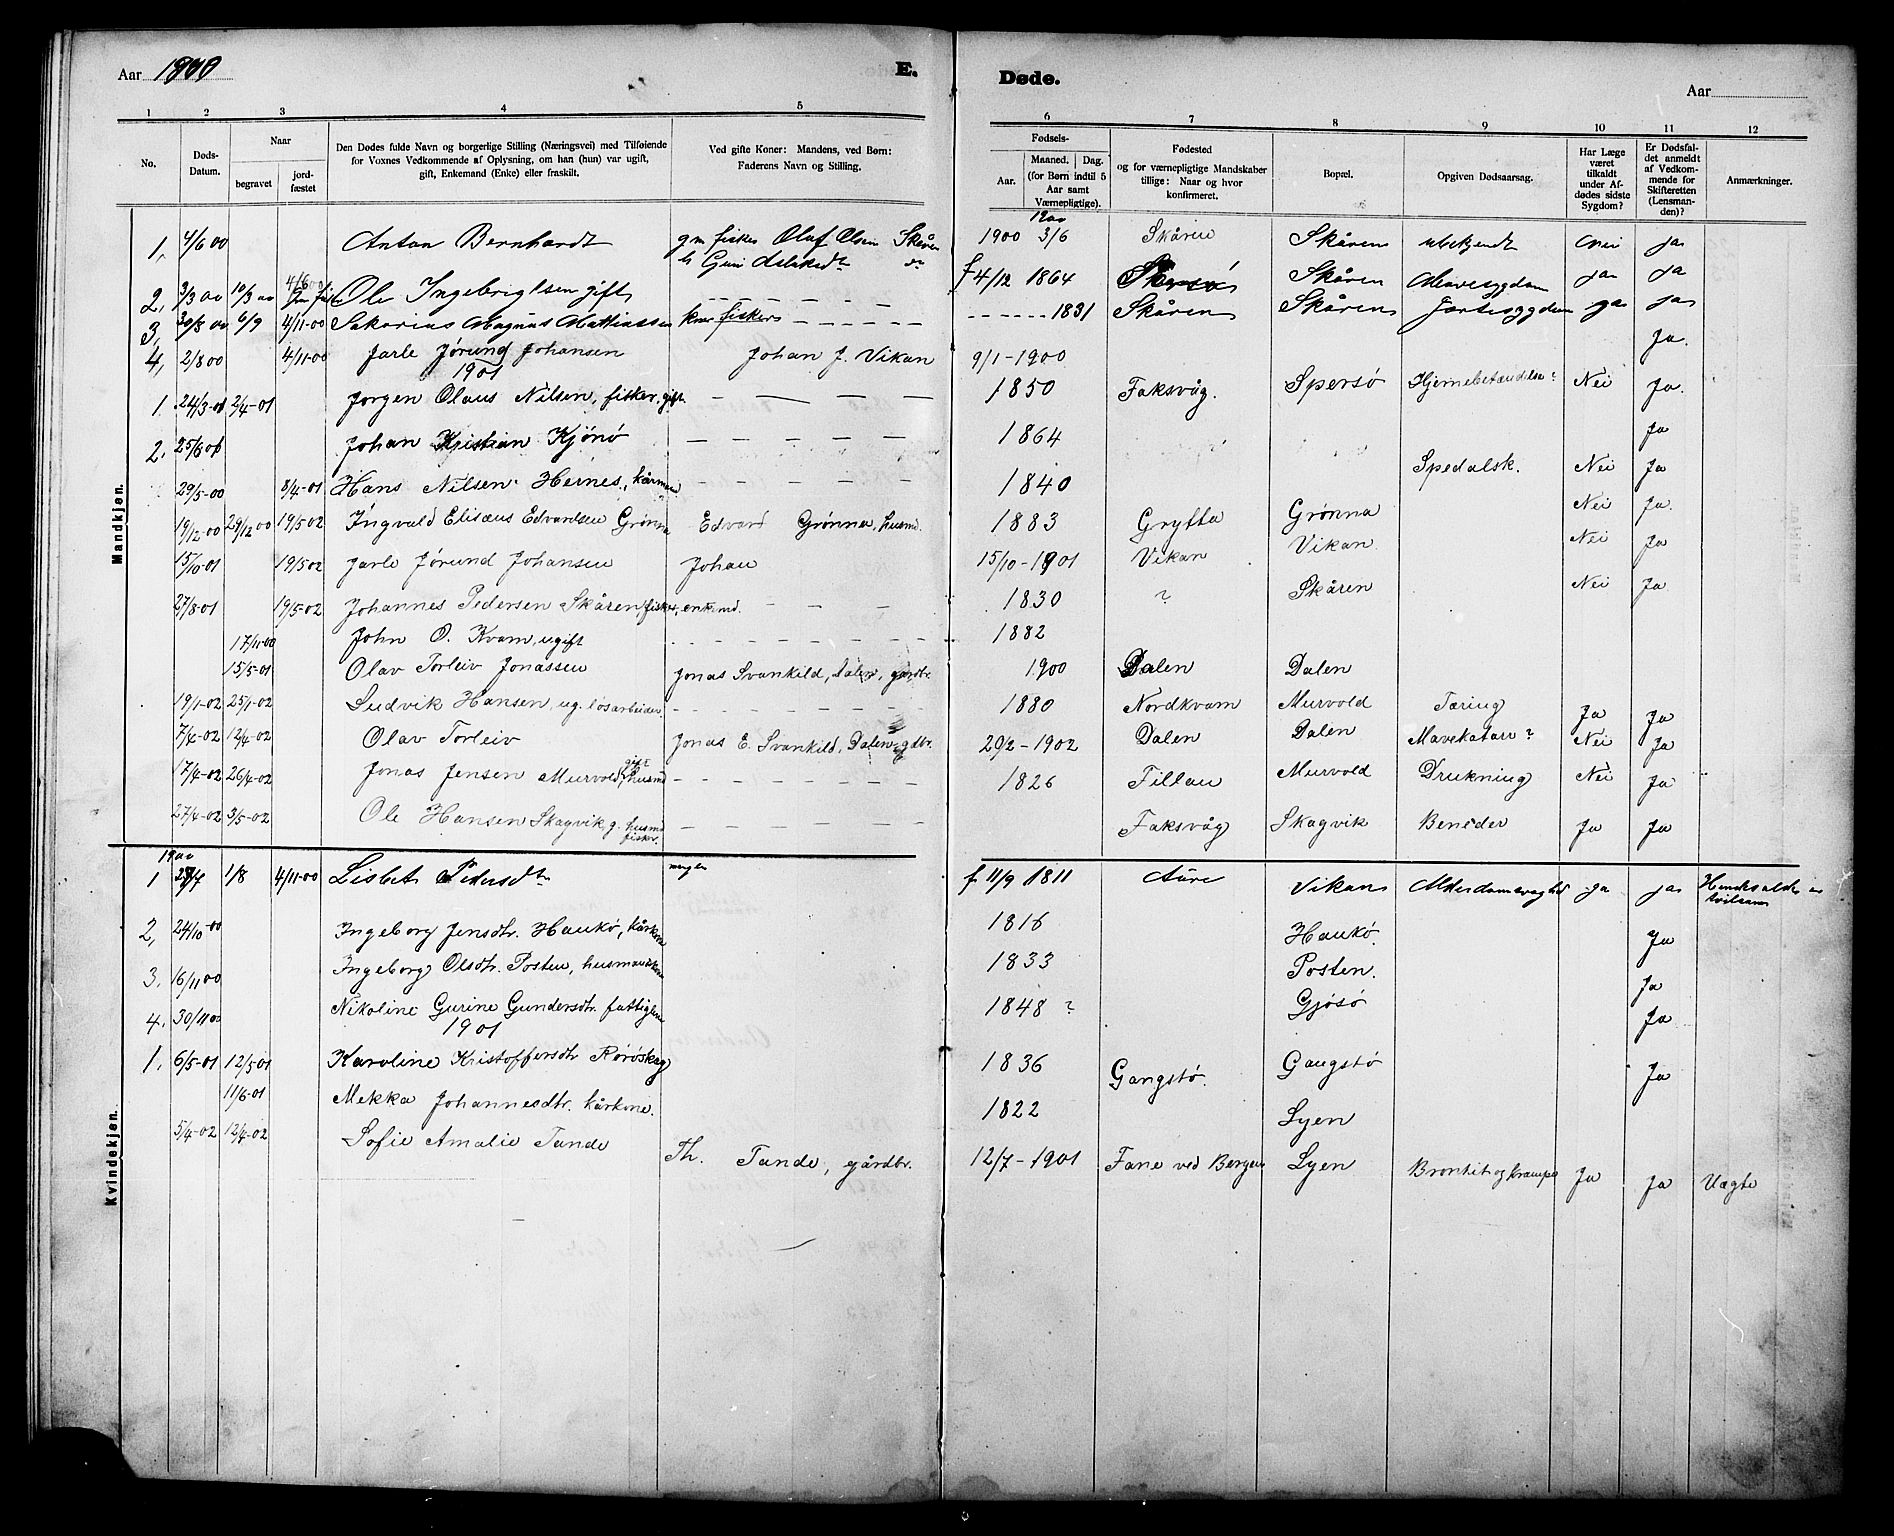 Aar 1900 E. Døde. Aar
1 2 3 4 5 6 7 8 9 10 11 12
No. Døds-Datum. Naar begravet jordfæstet Den Dødes fulde Navn og borgerlige Stilling (Næringsvei) med Tilføiende for Voxnes Vedkommende af Oplysning, om han (hun) var ugift, gift, Enkemand (Enke) eller fraskilt. Ved gifte Koner: Mandens, ved Børn: Faderens Navn og Stilling. Fødsels- Aar. Maaned. Dag. (for Børn indtil 5 Aar samt Værnepligtige). Fødested og for værnepligtige Mandskaber tillige: Naar og hvor konfirmeret. Bopæl. Opgiven Dødsaarsag. Har Læge været tilkaldt under Afdødes sidste Sygdom? Er Dødsfaldet anmeldt af Vedkommende for Skifteretten (Lensmanden)? Anmærkninger.
Mandkjøn.
1, 4/6 00 Anton Bernhardt gm fisker Olaf Olsen Skåren 1900 3/6 Skåren Skåren ubekjendt nei ja
2, 3/3 00 10/3 00 Ole Ingebrigtsen gift f 4/12 1864 Skåren Mavesygdom ja ja
3, 30/8 00 6/9 4/11-00 Sakarias Magnus Mattiassen fisker 1831 Skåren Skåren ja ja
4, 2/8 00 4/11-00 Jarle Jørund Johansen Johan J. Vikan 9/1-1900 Ja.
1901
1. 24/3-01 2/4-01 Jørgen Olaus Nilsen, fisker, gift 1850 Faksvåg. Spersø Hjernebetændelse? Nei Ja.
2. 25/8 01 Johan Kristian Kjønø 1864 Ja
29/5-00 8/4-01 Hans Nilsen Heines, kårmand 1840 Spedalsk. Nei Ja
19/12-00 29/12 00 19/5 02 Ingvald Elisæus Edvardsen Grønna Edvard Grønna, husmd. 1883 Grytta Grønna Nei Ja.
15/10-01 19/5 02 Jarle Jørund Johansen Johan 15/10-1901 Vikan Vikan Nei Ja
27/8-01 19/5-02 Johannes Pedersen Skåren, fisker, enkemd. 1830 ? Skåren Nei Ja
17/11-00 John O. Kvam, ugift 1882
15/5-01 Olav Torleiv Jonassen Jonas Svankild, Dalen, gårdbr. 1900 Dalen Dalen
19/1-02 25/1-02 Ludvik Hansen, ug. løsarbeider 1880 Nordkvam Murvold Tæring Ja Ja
7/4-02 12/4-02 Olav Torleiv Jonas E. Svankild, Dalen, gdbr. 20/2-1902 Dalen Dalen Mavekatarr? Nei Ja
17/4-02 26/4-02 Jonas Jensen Murvold, gift husmd 1826 Tiltau Murvold Drukning Nei Ja
27/4-02 3/5-02 Ole Hansen Skagvik, g. husmd fisker. Faksvåg Skagvik Beneder Ja Ja
Kvindekjøn.
1900
1 1/8 4/11-00 Lisbet Pedersdtr f 11/9 1811 Aure Vikan Alderdomssvaghed ja ja
2, 24/10-00 Ingeborg Jensdtr. Haukø, kårkone 1816 Haukø. Ja
3. 16/11 00 Ingeborg Olsdtr. Posten, husmandskone 1833 Posten. Ja
4. 30/11 00 Nikoline Gurine Gundersdtr. fattiglem 1848 ? Gjøsø Ja
1901
1. 6/5-01 12/5-01 Karoline Kristoffersdtr Rørøskag 1836 Gangstø. Gangstø Ja
11/6-01 Mekka Johannesdtr. kårkone. 1822 Lyen
5/4-02 12/4-02 Sofie Amalie Tande Th. Tande, gårdbr. 12/7-1901 Fane ved Bergen Lyen Bronkit og krampe Ja Ja Uægte